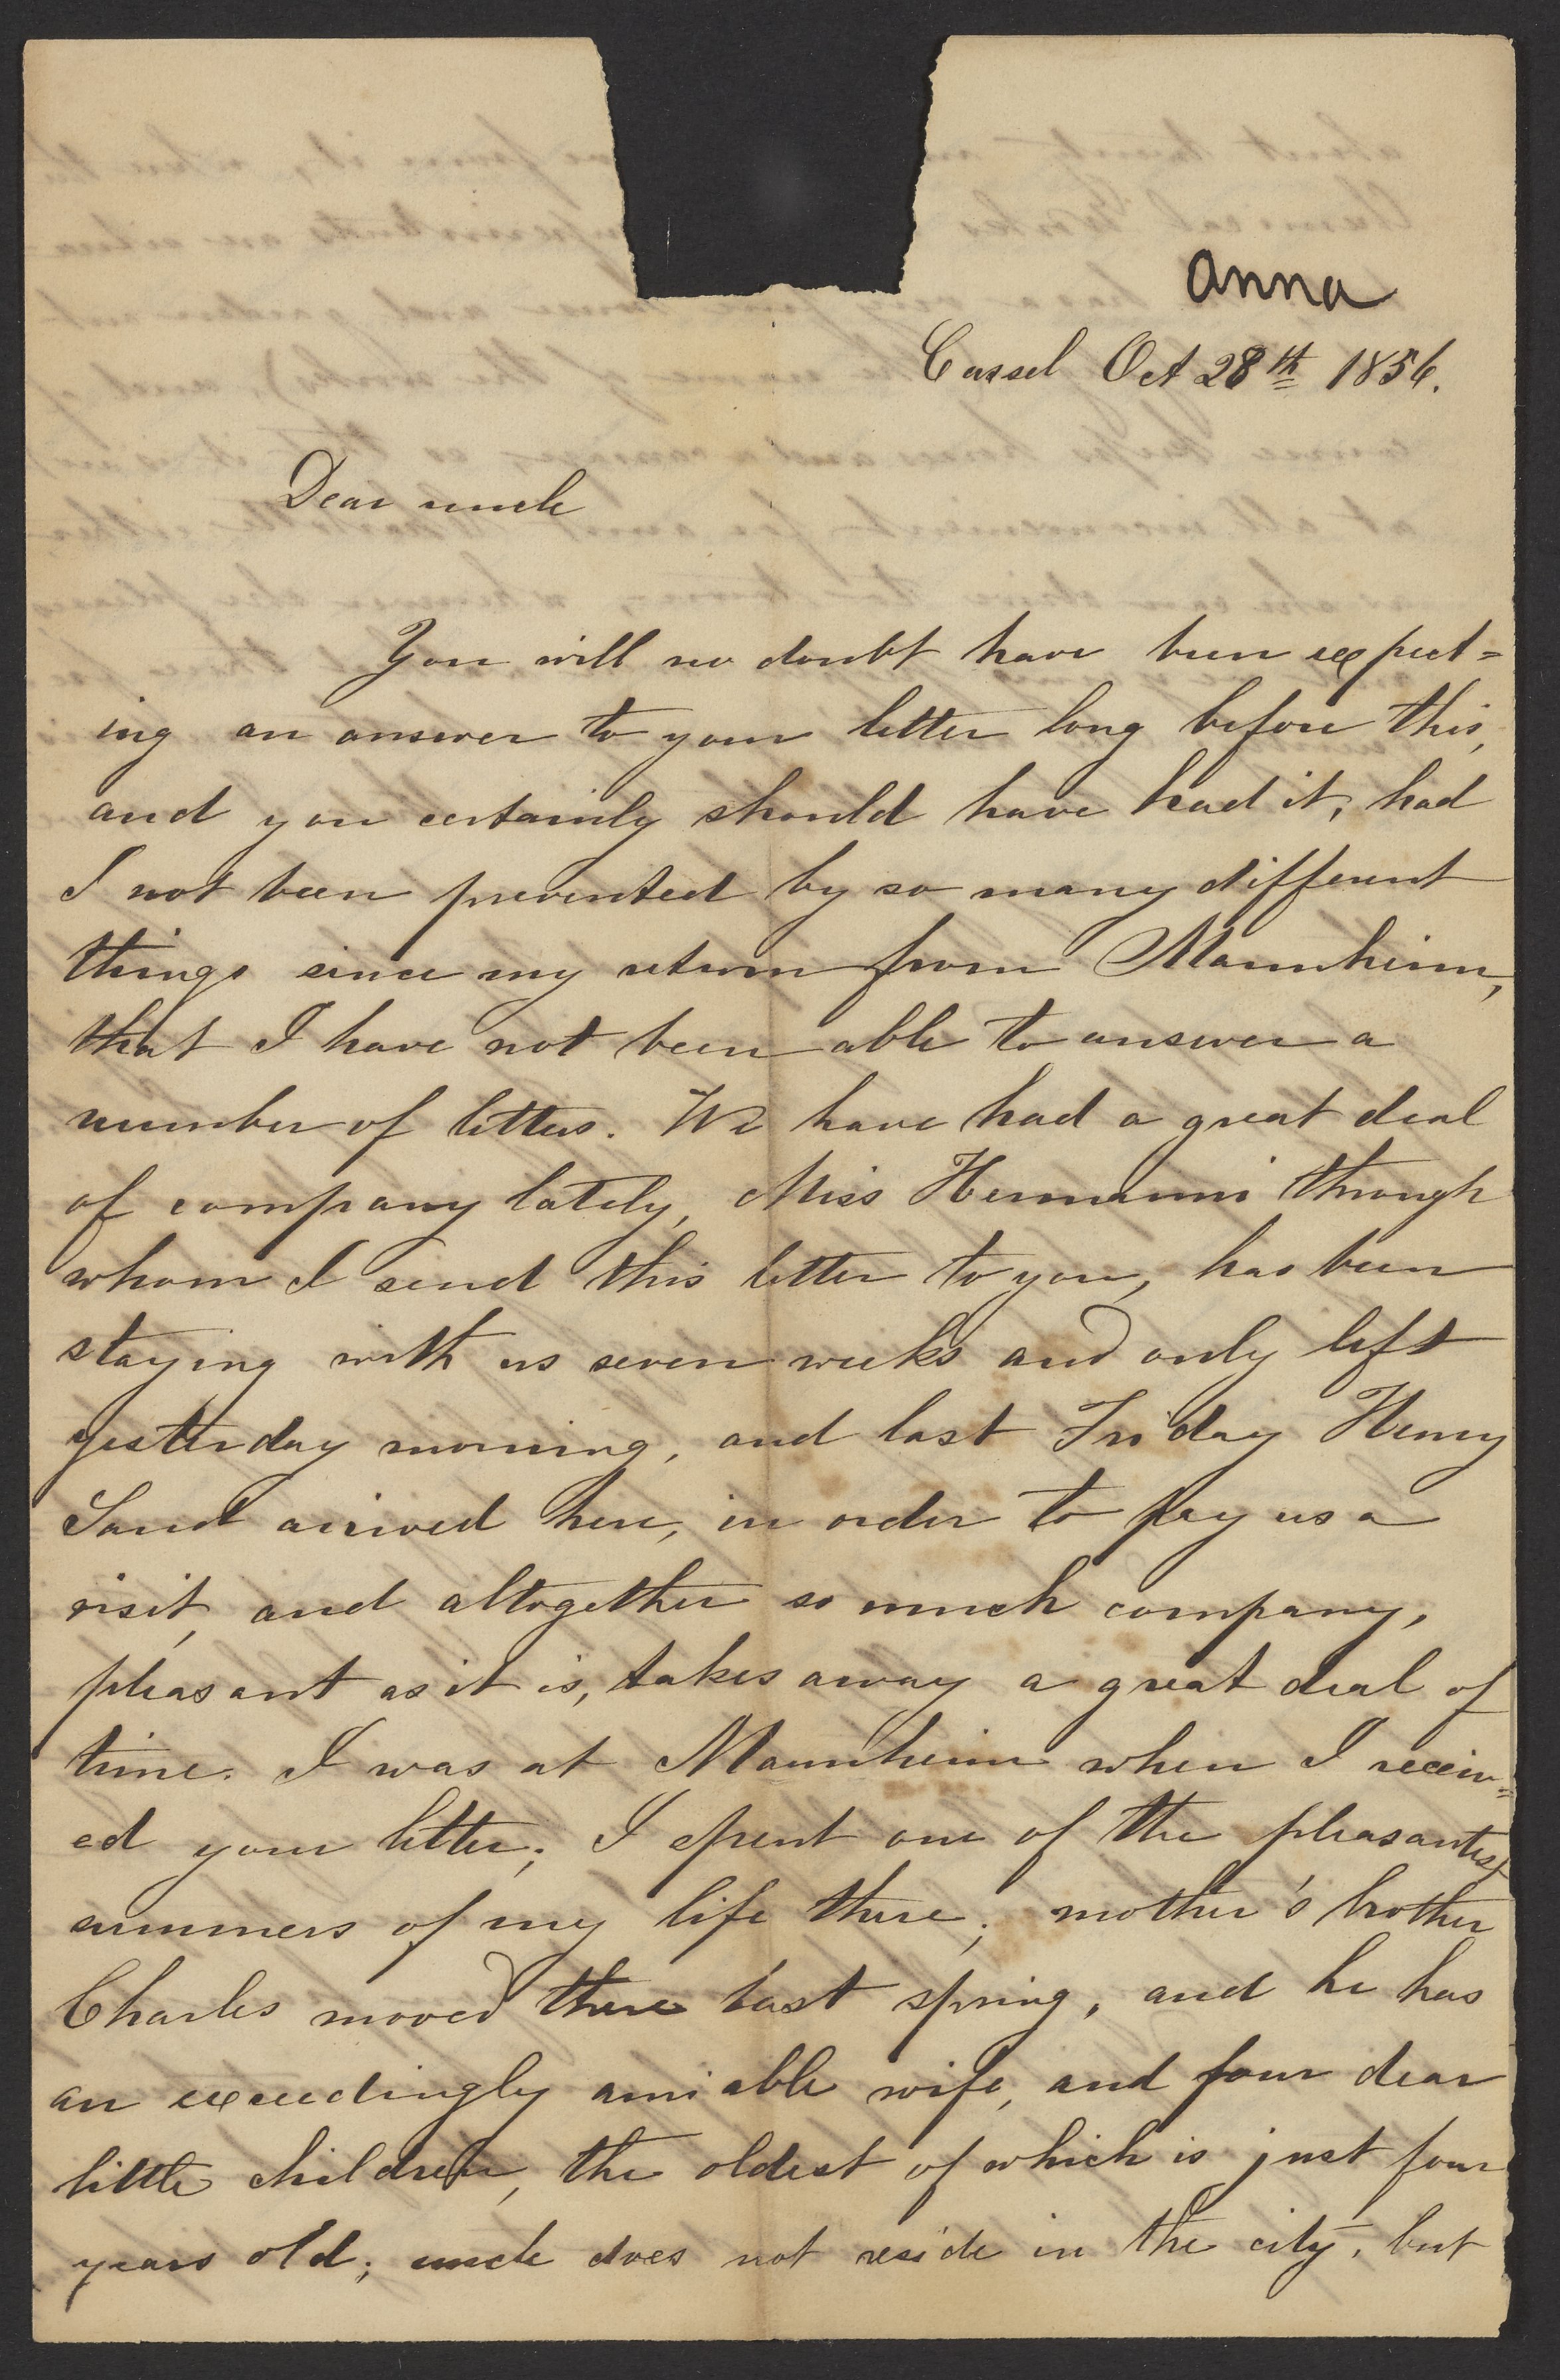 Anna
Cassel Oct 28th 1856.
Dear uncle
You will no doubt have been expect=
ing an answer to your letter long before this,
and you certainly should have had it, had
I not been prevented by so many different
things since my return from Mannheim,
that I have not been able to answer a
number of letters. We have had a great deal
of company lately, Miss Hermanni through
whom I send this letter to you, has been
staying with us seven weeks and only left
yesterday morning, and last Friday Henry
Sand arrived here, in order to pay us a
visit, and altogether so much company,
pleasant as it is, takes away a great deal of
time. I was at Mannheim when I receiv=
ed your letter; I spent one of the pleasantest
summers of my life there; mother's brother
Charles moved there last spring, and he has
an exceedingly amiable wife, and four dear
little children, the oldest of which is just four
years old; uncle does not reside in the city, but